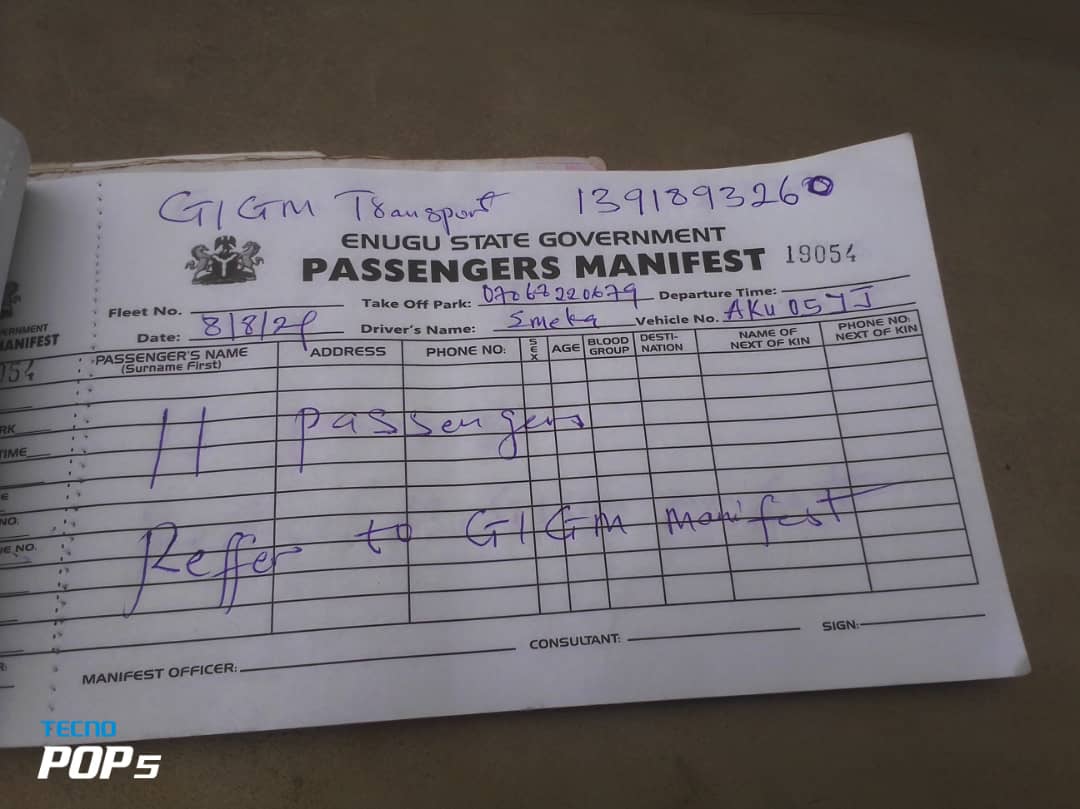 GIGM Transport 1391893260
ENUGU STATE GOVERNMENT
PASSENGERS MANIFEST 19054
Fleet No. Take Off Park: 07067220679 Departure Time:
Date: 8/8/24 Driver's Name: Emeka Vehicle No. AKU 05 YJ
PASSENGER'S NAME (Surname First) ADDRESS PHONE NO: SEX AGE BLOOD GROUP DESTI-NATION NAME OF NEXT OF KIN PHONE NO: NEXT OF KIN
11 passengers
Reffer to GIGM manifest
MANIFEST OFFICER: CONSULTANT: SIGN:
TECNO
POP5